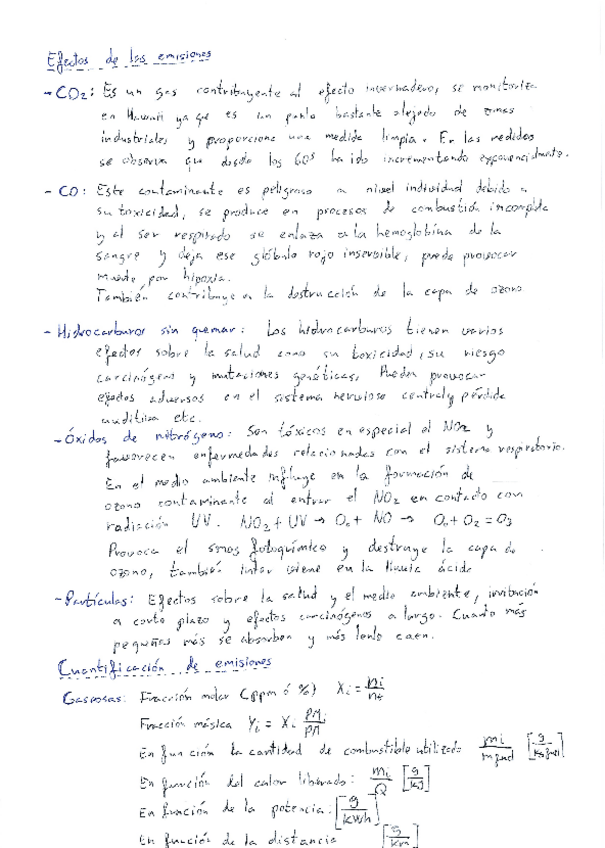 Efectos de las emisiones
- CO2: Es un gas contribuyente al efecto invernadero, se monitoriza
en Hawaii ya que es un punto bastante alejado de zonas
industriales y proporciona una medida limpia. En las medidas
se observa que desde los 60s ha ido incrementando exponencialmente.
- CO: Este contaminante es peligroso a nivel individual debido a
su toxicidad, se produce en procesos de combustión incompleta
y al ser respirado se enlaza a la hemoglobina de la
sangre y deja ese glóbulo rojo inservible, puede provocar
muerte por hipoxia.
También contribuye en la destrucción de la capa de ozono
- Hidrocarburos sin quemar: Los hidrocarburos tienen varios
efectos sobre la salud como su toxicidad, su riesgo
carcinógeno y mutaciones genéticas. Pueden provocar
efectos adversos en el sistema nervioso central y pérdida
auditiva etc.
- Óxidos de nitrógeno: Son tóxicos en especial el NO2 y
favorecen enfermedades relacionadas con el sistema respiratorio.
En el medio ambiente influye en la formación de
ozono contaminante al entrar el NO2 en contacto con
radiación UV. NO2 + UV → O. + NO → O. + O2 = O3
Provoca el smog fotoquímico y destruye la capa de
ozono, también interviene en la lluvia ácida
- Partículas: Efectos sobre la salud y el medio ambiente, irritación
a corto plazo y efectos carcinógenos a largo. Cuanto más
pequeñas más se absorben y más lento caen.
Cuantificación de emisiones
Gaseosas: Fracción molar (ppm ó %) Xi = ni/nt
Fracción másica Yi = Xi PMi/PM
En función la cantidad de combustible utilizado mi/mfuel [g/kgfuel]
En función del calor liberado: mi/Q [g/kJ]
En función de la potencia: [g/kWh]
En función de la distancia [g/km]